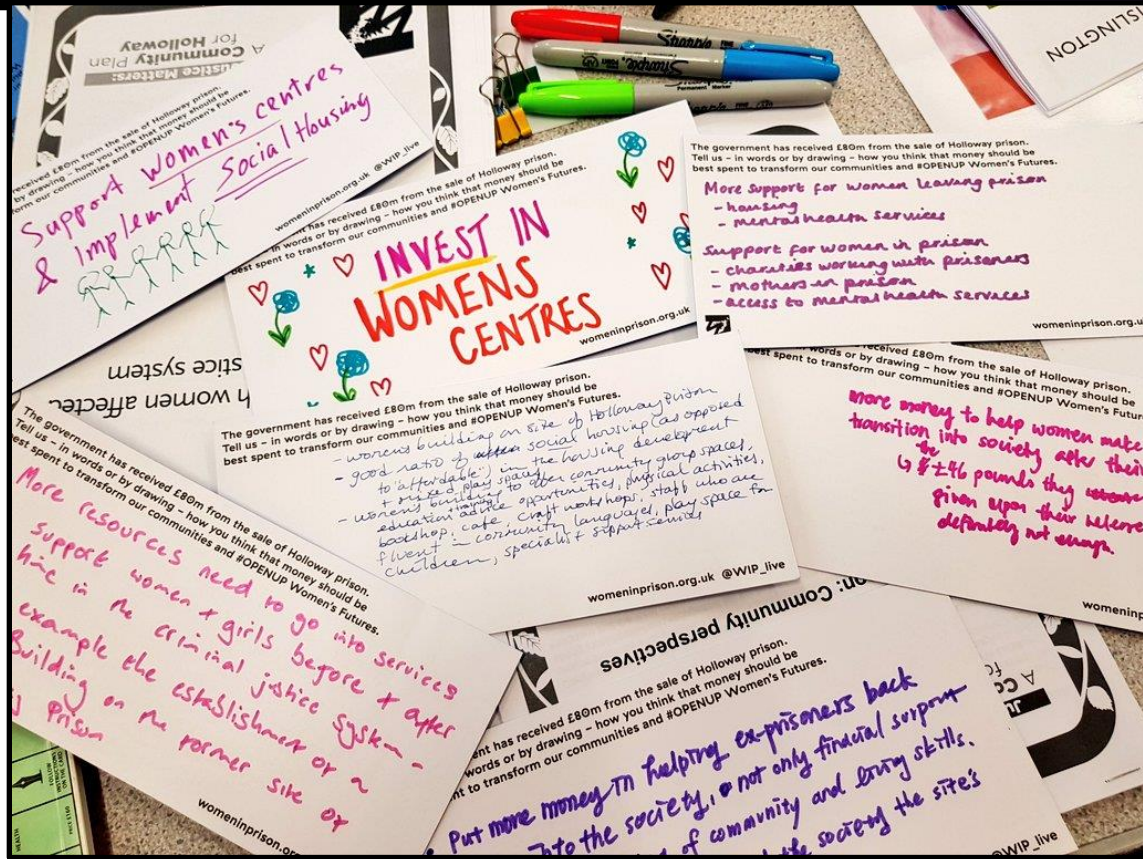 A Community Plan
for Holloway
Justice Matters:
Sharpie
Sharpie
Permanent Marker
Sharpie
ISLINGTON
received £80m from the sale of Holloway prison.
by drawing – how you think that money should be
form our communities and #OPENUP Women's Futures.
Support women's centres
& implement Social Housing
womeninprison.org.uk @WIP_live
has received £80m from the sale of Holloway prison.
in words or by drawing – how you think that money should be
best spent to transform our communities and #OPENUP Women's Futures.
INVEST IN
WOMENS
CENTRES
womeninprison.org.uk
The government has received £80m from the sale of Holloway prison.
Tell us – in words or by drawing – how you think that money should be
best spent to transform our communities and #OPENUP Women's Futures.
More support for women leaving prison
- housing
- mental health services
Support for women in prison
- charities working with prisoners
- mothers in prison
- access to mental health services
womeninprison.org.u
h women affected
stice system
The government has received £80m from the sale of Holloway prison.
Tell us – in words or by drawing – how you think that money should be
best spent to transform our communities and #OPENUP Women's Futures.
- womens building on site of Holloway Prison
- good ratio of social housing (as opposed
to 'affordable') in the housing development
+ mixed play space
- women's building to offer community group spaces,
education advice training opportunities, physical activities,
bookshop, cafe, craft workshops, staff who are
fluent in community languages, play space for
children, specialist support services
womeninprison.org.uk @WIP_live
received £80m from the sale of Holloway prison.
words or by drawing – how you think that money should be
est spent to transform our communities and #OPENUP Women's Futur
more money to help women make
transition into society after their
the
↳ £46 pounds they
given upon their release
definitely not enough.
womeninp
The government has received £80m from the sale of Holloway prison.
Tell us – in words or by drawing – how you think that money should be
best spent to transform our communities and #OPENUP Women's Futures.
More resources need to go into services
support women + girls before + after
time in the criminal justice system -
example the establishment of a
Building on the former site of
prison
womeninprison.org
on: Community perspectives
nt has received £80m from the sale of Holloway prison.
words or by drawing – how you think that money should be
nt to transform our communities and #OPENUP Women's Futures.
Put more money in helping ex-prisoners back
into the society, not only financial support
of community and living skills.
the society the site's
@WIP_live
FOLLOW
INSTRUCTIONS
ON THE CARD
PRICE £160
HEALTH